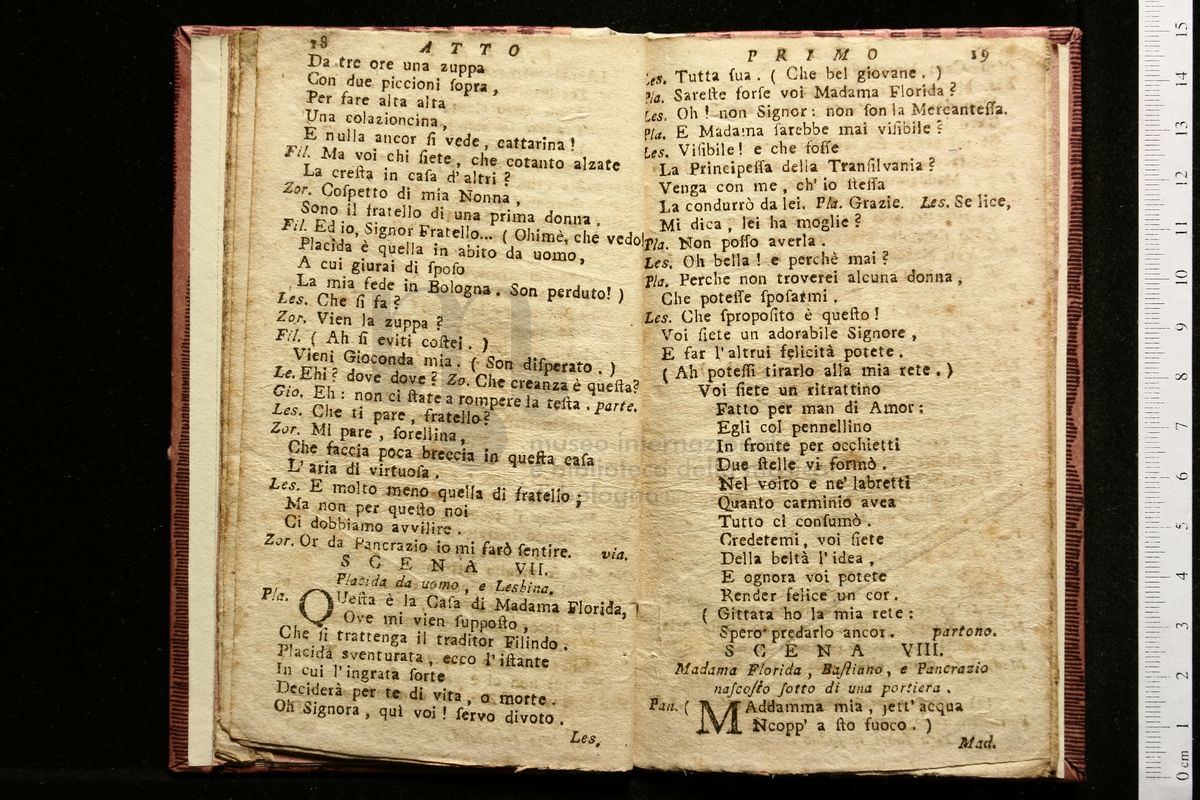 18 ATTO
Da tre ore una zuppa
Con due piccioni ſopra,
Per fare alta alta
Una colazioncina,
E nulla ancor ſi vede, cattarina!
Fil. Ma voi chi ſiete, che cotanto alzate
La creſta in caſa d'altri?
Zor. Coſpetto di mia Nonna,
Sono il fratello di una prima donna.
Fil. Ed io, Signor Fratello... (Ohimè, che vedo!
Placida è quella in abito da uomo,
A cui giurai di ſpoſo
La mia fede in Bologna. Son perduto!)
Les. Che ſi fa?
Zor. Vien la zuppa?
Fil. (Ah ſi eviti coſtei.)
Vieni Gioconda mia. (Son diſperato.)
Le. Ehi? dove dove? Zo. Che creanza è queſta?
Gio. Eh: non ci ſtate a rompere la teſta. parte.
Les. Che ti pare, fratello?
Zor. Mi pare, ſorellina,
Che faccia poca breccia in queſta caſa
L'aria di virtuoſa.
Les. E molto meno quella di fratello;
Ma non per queſto noi
Ci dobbiamo avvilire.
Zor. Or da Pancrazio io mi farò ſentire. via.
SCENA VII.
Placida da uomo, e Lesbina.
Pla. QUeſta è la Caſa di Madama Florida,
Ove mi vien ſuppoſto,
Che ſi trattenga il traditor Filindo.
Placida sventurata, ecco l'iſtante
In cui l'ingrata ſorte
Deciderà per te di vita, o morte.
Oh Signora, quì voi! ſervo divoto.
Les.
PRIMO 19
Les. Tutta ſua. (Che bel giovane.)
Pla. Sareſte forſe voi Madama Florida?
Les. Oh! non Signor: non ſon la Mercanteſſa.
Pla. E Madama ſarebbe mai viſibile?
Les. Viſibile! e che foſſe
La Principeſſa della Tranſilvania?
Venga con me, ch'io ſteſſa
La condurrò da lei. Pla. Grazie. Les. Se lice,
Mi dica, lei ha moglie?
Pla. Non poſſo averla.
Les. Oh bella! e perchè mai?
Pla. Perche non troverei alcuna donna,
Che poteſſe ſpoſarmi.
Les. Che ſpropoſito è queſto!
Voi ſiete un adorabile Signore,
E far l'altrui felicità potete.
(Ah poteſſi tirarlo alla mia rete.)
Voi ſiete un ritrattino
Fatto per man di Amor:
Egli col pennellino
In fronte per occhietti
Due ſtelle vi formò.
Nel volto e ne' labretti
Quanto carminio avea
Tutto ci conſumò.
Credetemi, voi ſiete
Della beltà l'idea,
E ognora voi potete
Render felice un cor.
(Gittata ho la mia rete:
Spero predarlo ancor. partono.
SCENA VIII.
Madama Florida, Baſtiano, e Pancrazio
naſcoſto ſotto di una portiera.
Pan. (MAddamma mia, jett'acqua
Ncopp' a ſto fuoco.)
Mad.
museo internazionale
e biblioteca della musica
bologna
0 cm 1 2 3 4 5 6 7 8 9 10 11 12 13 14 15